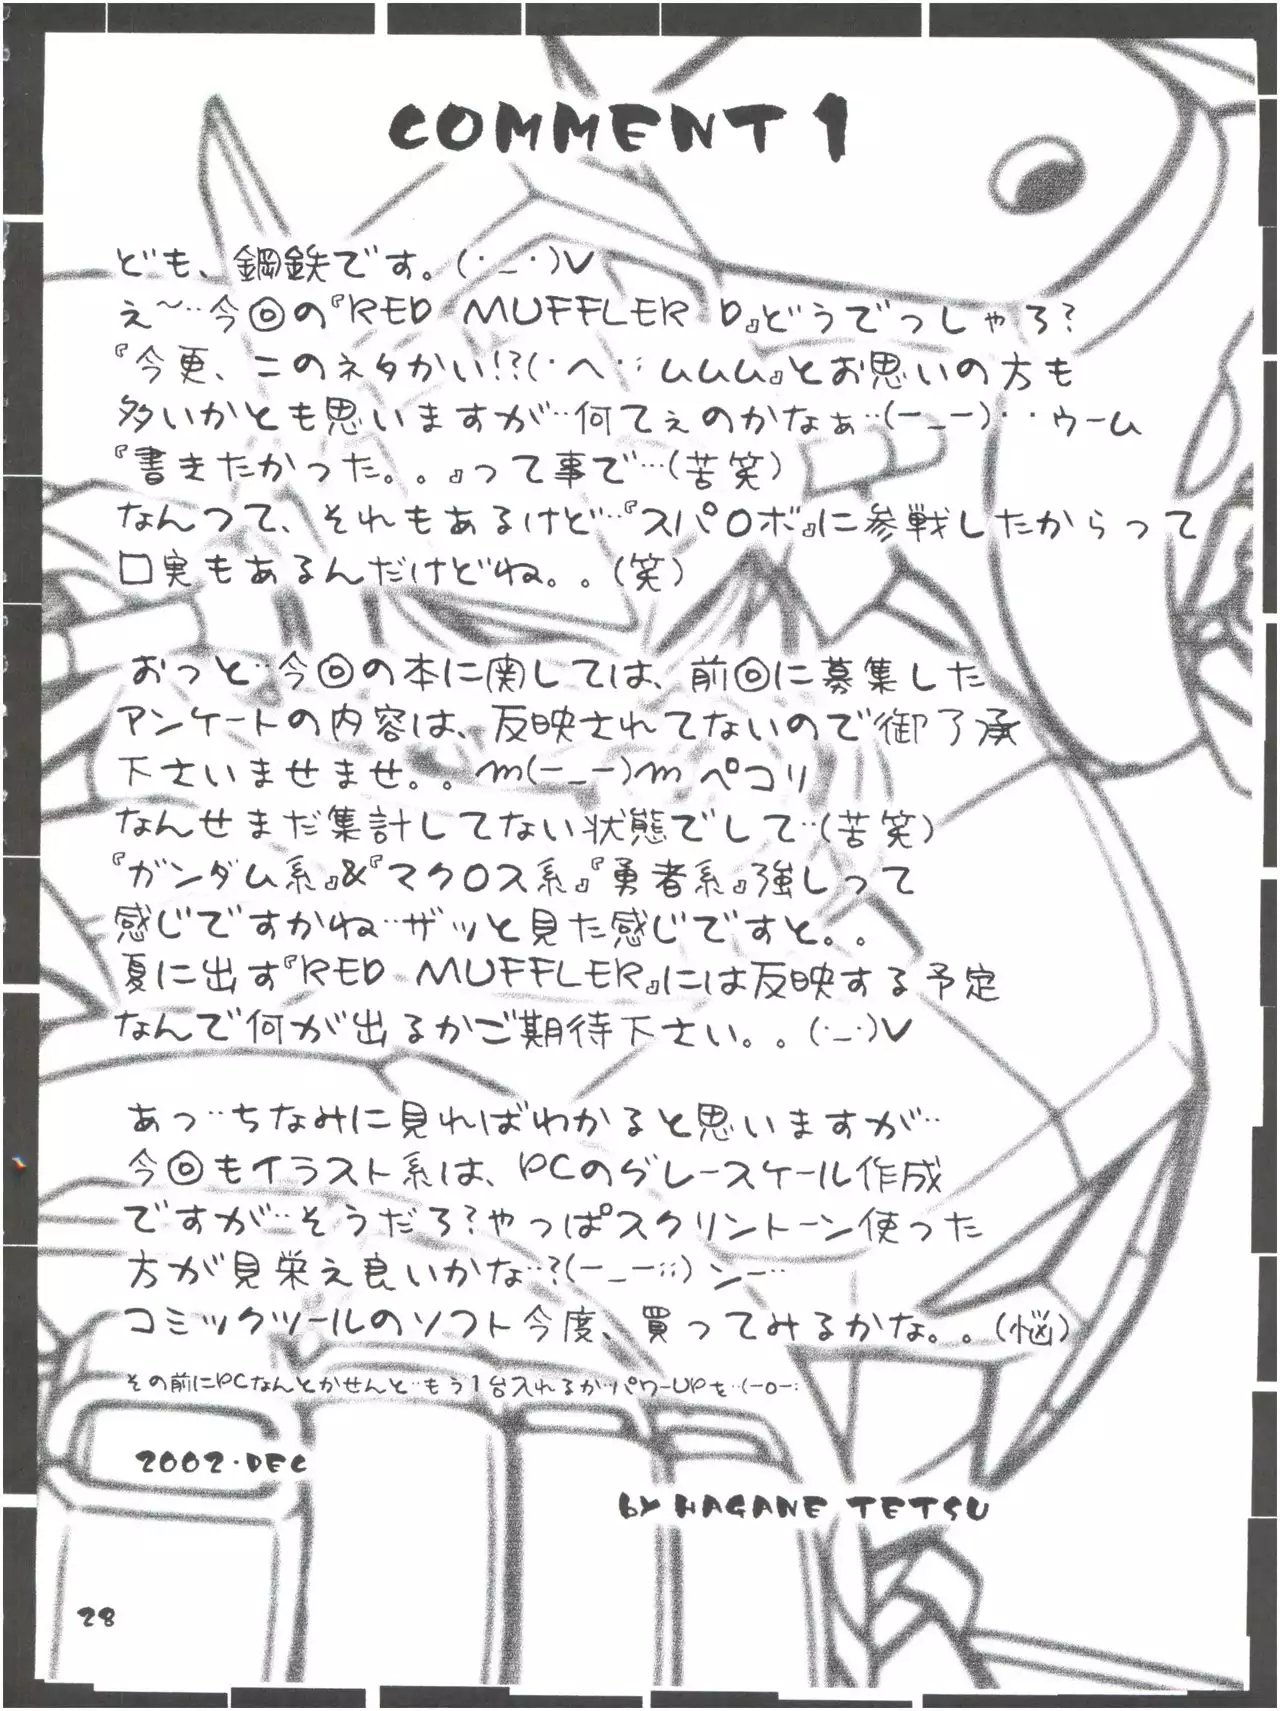 COMMENT 1
ども、鋼鉄です。(・_・)V
え〜…今回の『RED MUFFLER D』どうでっしゃろ?
『今更、このネタかい!?(・へ・;ムムム』とお思いの方も
多いかとも思いますが…何てぇのかなぁ…(ー_ー)・・ウーム
『書きたかった。。』って事で…(苦笑)
なんつて、それもあるけど…『スパロボ』に参戦したからって
口実もあるんだけどね。。(笑)
おっと…今回の本に関しては、前回に募集した
アンケートの内容は、反映されてないので御了承
下さいませませ。。m(ー_ー)m ペコリ
なんせまだ集計してない状態でして…(苦笑)
『ガンダム系』&『マクロス系』『勇者系』強しって
感じですかね…ザッと見た感じですと。。
夏に出す『RED MUFFLER』には反映する予定
なんで何が出るかご期待下さい。。(・_・)V
あっ…ちなみに見ればわかると思いますが…
今回もイラスト系は、PCのグレースケール作成
ですが…そうだろ?やっぱスクリントーン使った
方が見栄え良いかな…?(ー_ー;;)ンー…
コミックツールのソフト今度、買ってみるかな。。(悩)
その前にPCなんとかせんと…もう1台入れるか…パワーUPを…(ーoー;
2002・DEC
by HAGANE TETSU
28